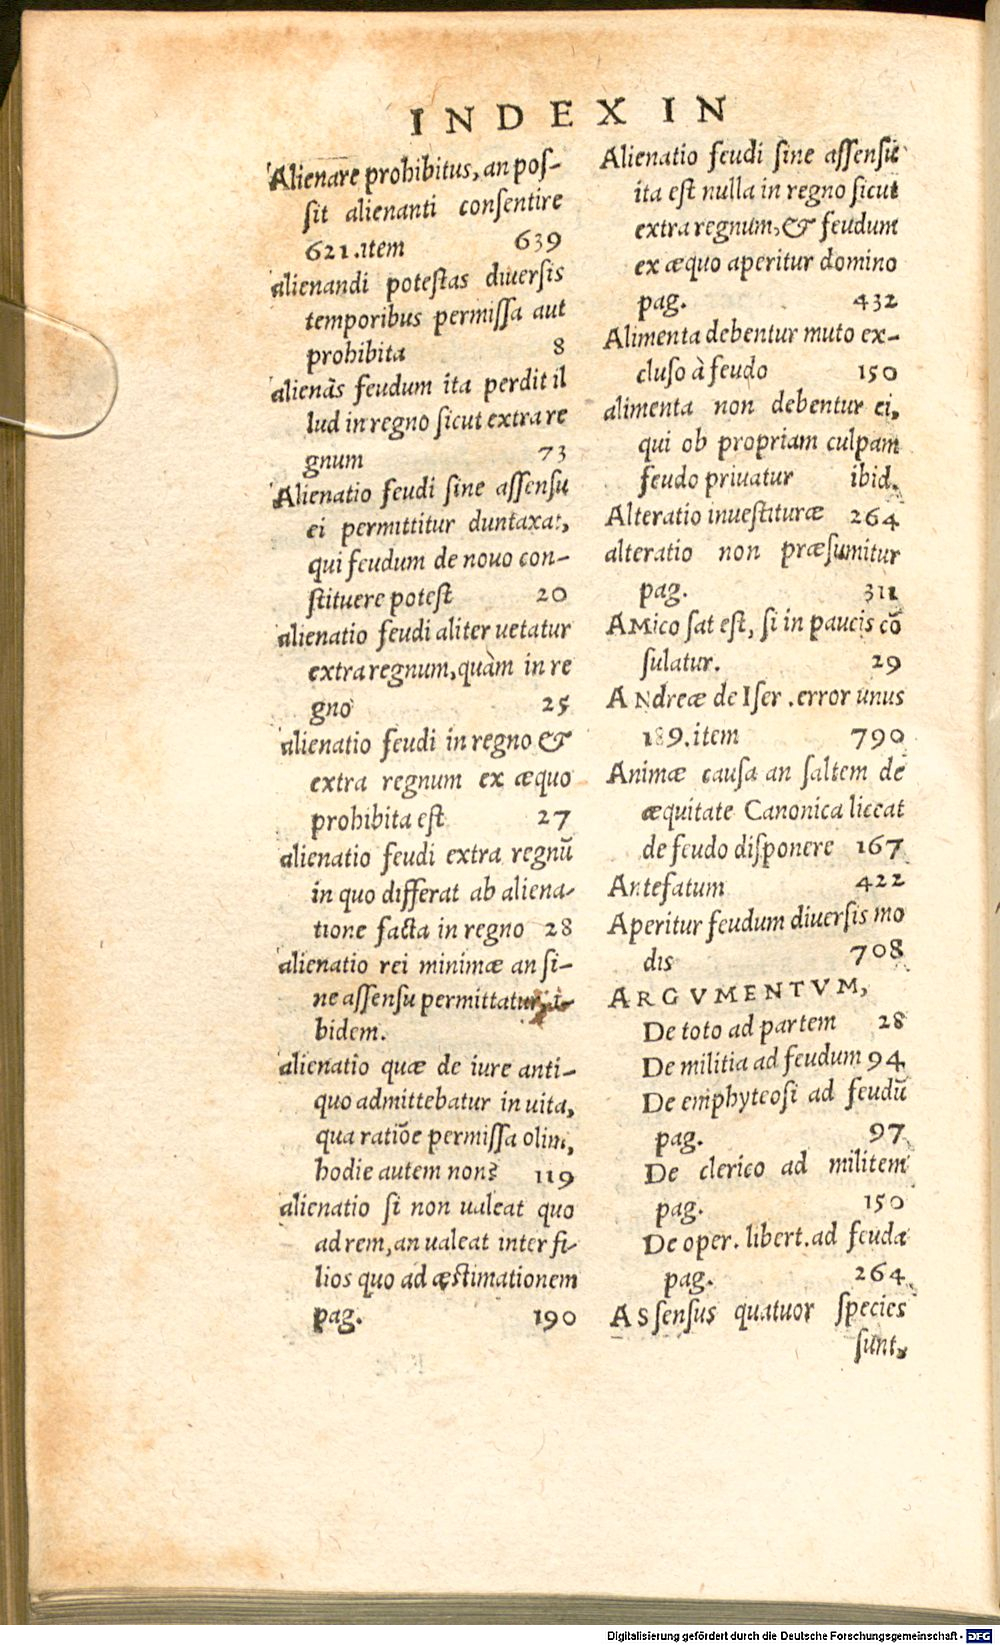 INDEX IN
Alienare prohibitus, an pos-
sit alienanti consentire
621. item 639
alienandi potestas diuersis
temporibus permissa aut
prohibita 8
alienãs feudum ita perdit il
lud in regno sicut extra re
gnum 73
Alienatio feudi sine assensu
ei permittitur duntaxat,
qui feudum de nouo con-
stituere potest 20
alienatio feudi aliter uetatur
extra regnum, quàm in re
gno 25
alienatio feudi in regno &
extra regnum ex æquo
prohibita est 27
alienatio feudi extra regnũ
in quo differat ab aliena-
tione facta in regno 28
alienatio rei minimæ an si-
ne assensu permittatur, i-
bidem.
alienatio quæ de iure anti-
quo admittebatur in uita,
qua ratiõe permissa olim,
hodie autem non? 119
alienatio si non ualeat quo
ad rem, an ualeat inter fi-
lios quo ad æstimationem
pag. 190
Alienatio feudi sine assensu
ita est nulla in regno sicut
extra regnum, & feudum
ex æquo aperitur domino
pag. 432
Alimenta debentur muto ex-
cluso à feudo 150
alimenta non debentur ei,
qui ob propriam culpam
feudo priuatur ibid.
Alteratio inuestituræ 264
alteratio non præsumitur
pag. 311
AMico sat est, si in paucis cõ
sulatur. 29
ANdreæ de Iser. error unus
189. item 790
Animæ causa an saltem de
æquitate Canonica liceat
de feudo disponere 167
Antefatum 422
Aperitur feudum diuersis mo
dis 708
ARGVMENTVM,
De toto ad partem 28
De militia ad feudum 94
De emphyteosi ad feudũ
pag. 97
De clerico ad militem
pag. 150
De oper. libert. ad feuda
pag. 264
ASsensus quatuor species
sunt,
Digitalisierung gefördert durch die Deutsche Forschungsgemeinschaft - DFG